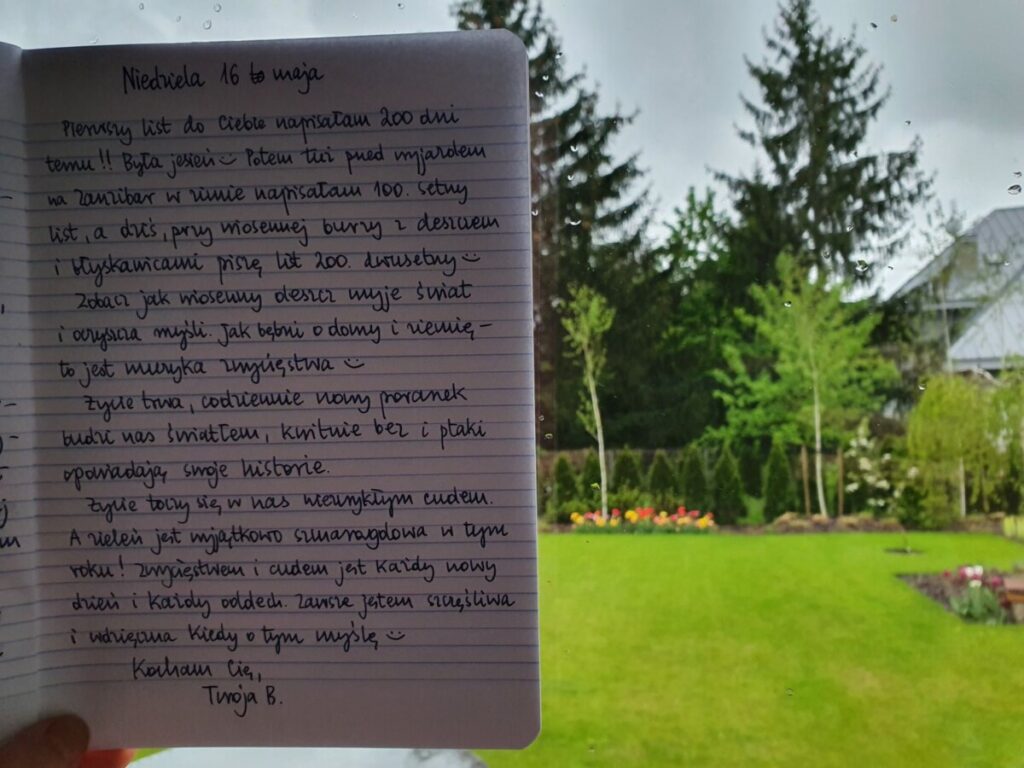 Niedziela 16 maja
Pierwszy list do Ciebie napisałam 200 dni
temu!! Była jesień Potem tuż przed wyjazdem
na Zanzibar w zimie napisałam 100. setny
list, a dziś, przy wiosennej burzy z deszczem
i błyskawicami piszę list 200. dwusetny
Zobacz jak wiosenny deszcz myje świat
i oczyszcza myśli. Jak bębni o domy i ziemię –
to jest muzyka zwycięstwa
Życie trwa, codziennie nowy poranek
budzi nas światłem, kwitnie bez i ptaki
opowiadają swoje historie.
Życie toczy się w nas niezwykłym cudem.
A zieleń jest wyjątkowo szmaragdowa w tym
roku! Zwycięstwem i cudem jest każdy nowy
dzień i każdy oddech. Zawsze jestem szczęśliwa
i wdzięczna kiedy o tym myślę
Kocham Cię,
Twoja B.